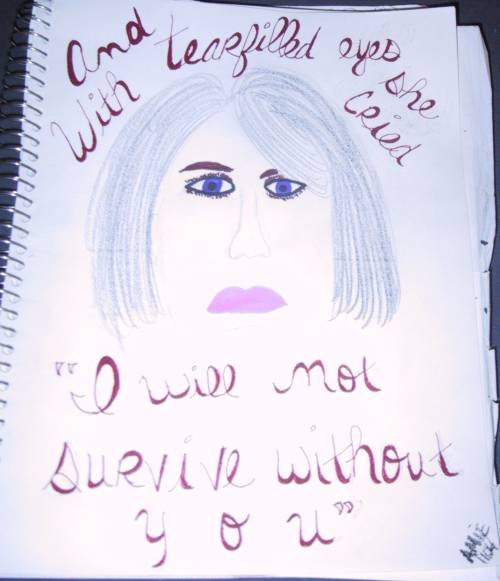 And
With tearfilled eyes she
cried
"I will not
survive without
you"